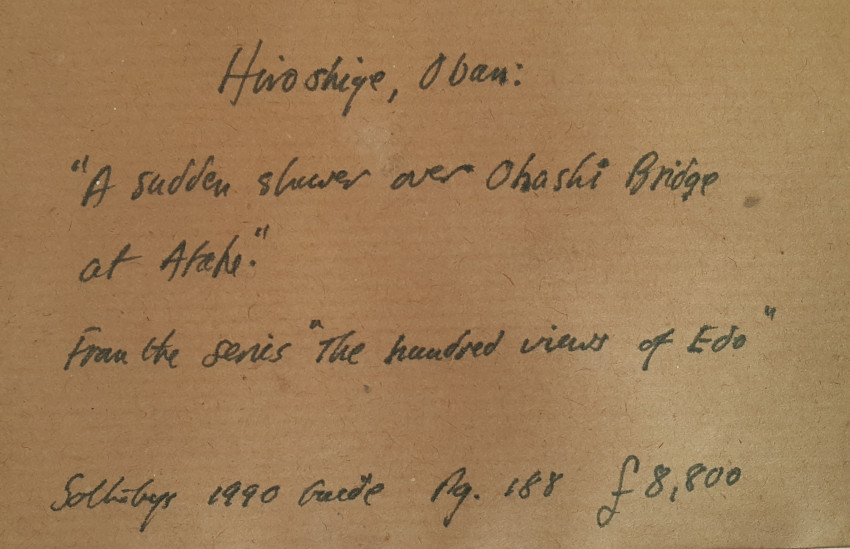 Hiroshige, Oban:
"A sudden shower over Ohashi Bridge
at Atake."
From the series "The hundred views of Edo"
Sothebys 1990 Guide Pg. 188 £8,800